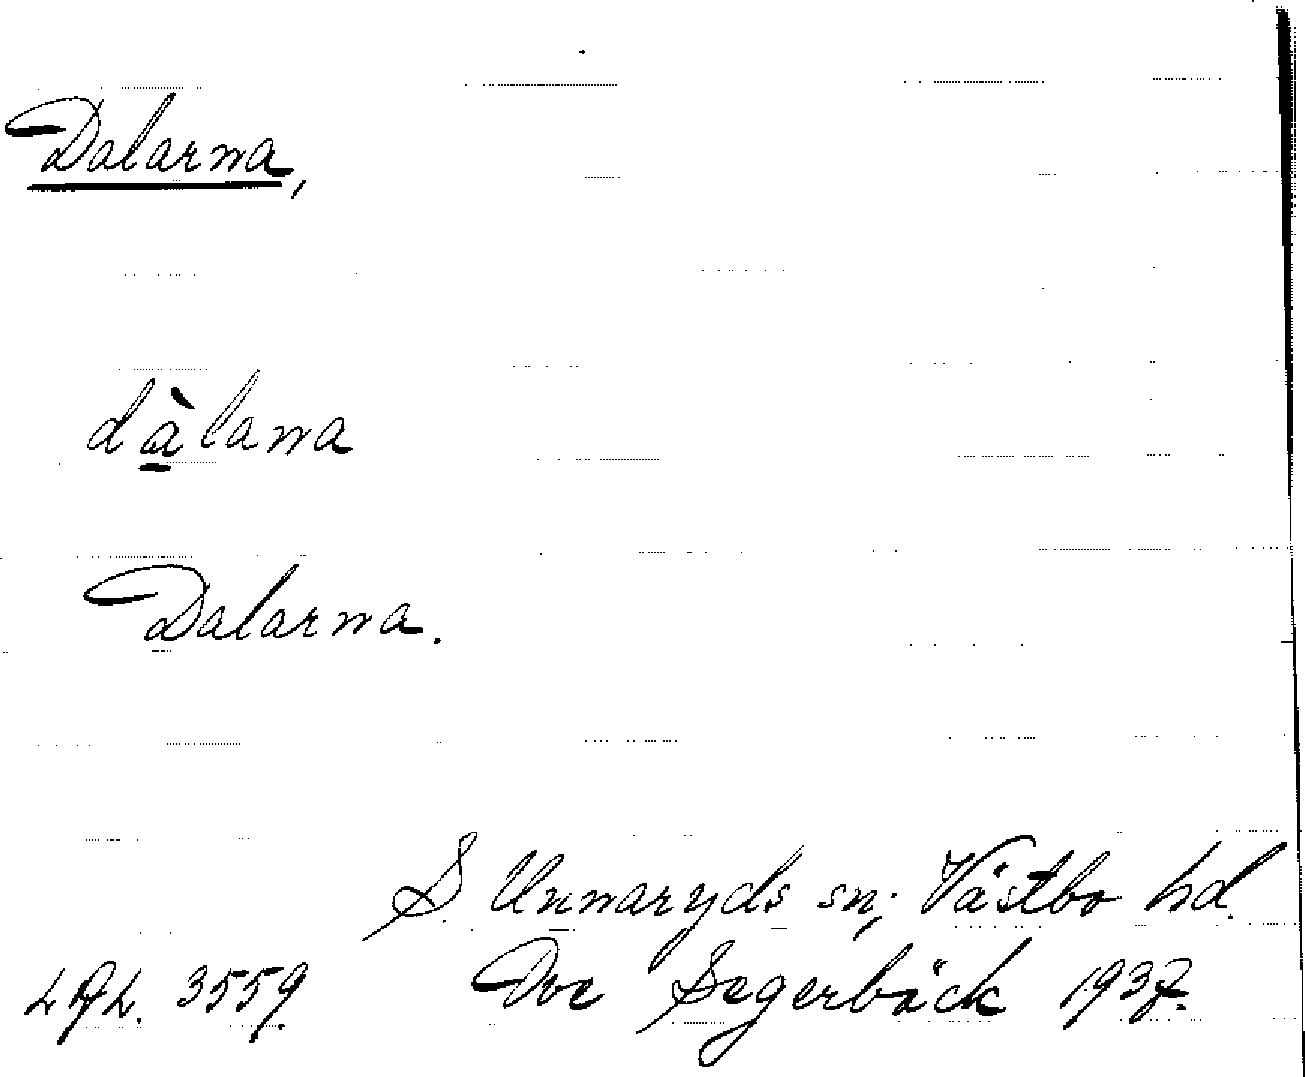 Dalarna,
dàlana
Dalarna.
S. Unnaryds sn; Västbo hd.
LAL. 3559. Ove Segerbäck 1937.